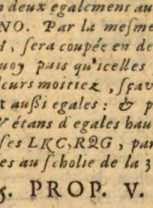 deux egalement au
NO. Par la mesme
, sera coupée en de
uoy pais qu'icelles
leurs moitiez, sçav
x außi egales: & p
& étans d'egales hau
ses LKC, RQG, par
es au scholie de la 3
5. PROP. V.